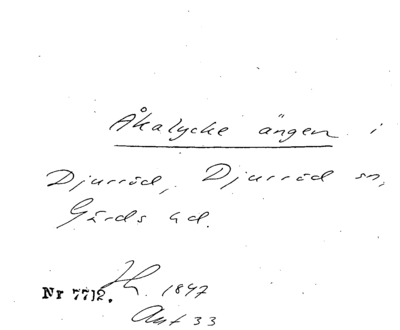 Åkalycke ängen i
Djurröd, Djurröd sn,
Gärds hd.
Nr 7712. Jh. 1847
Ant 33